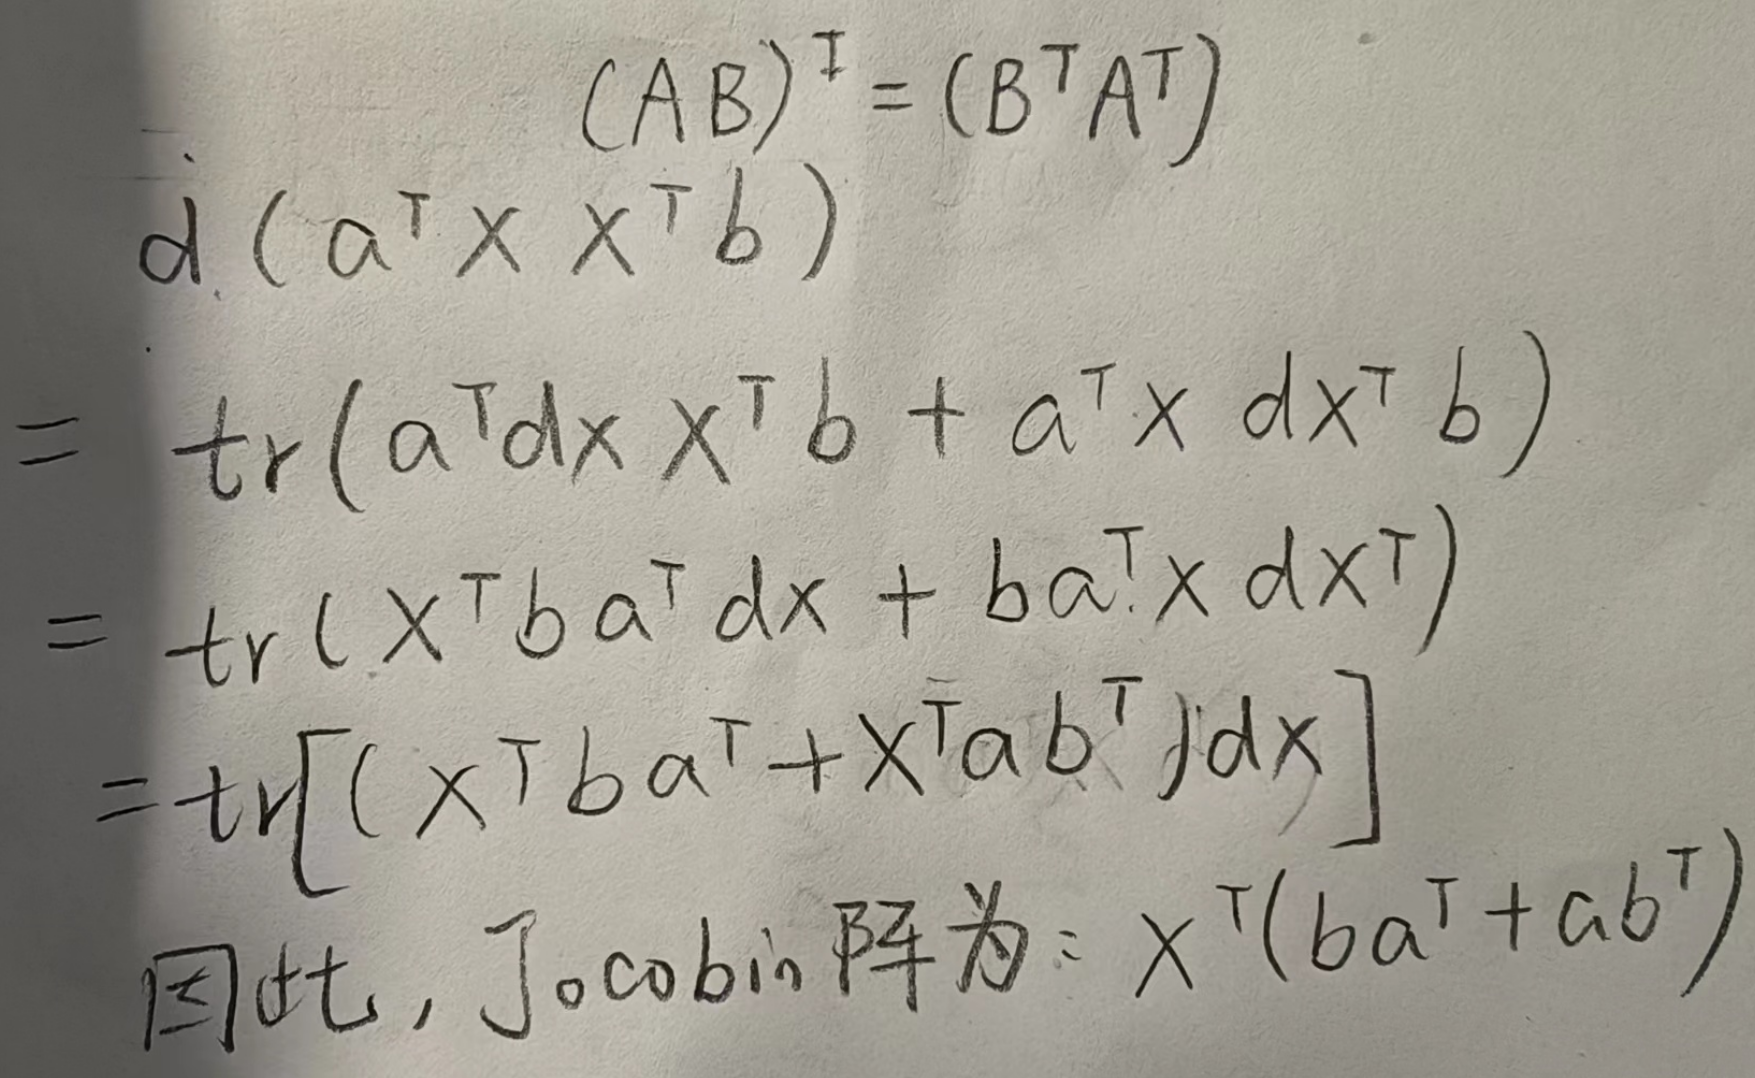 (AB)ᵀ = (BᵀAᵀ)
d(aᵀx xᵀb)
= tr(aᵀdx xᵀb + aᵀx dxᵀ b)
= tr(xᵀbaᵀdx + baᵀx dxᵀ)
= tr[(xᵀbaᵀ + xᵀabᵀ)dx]
因此, Jocobin阵为: xᵀ(baᵀ + abᵀ)